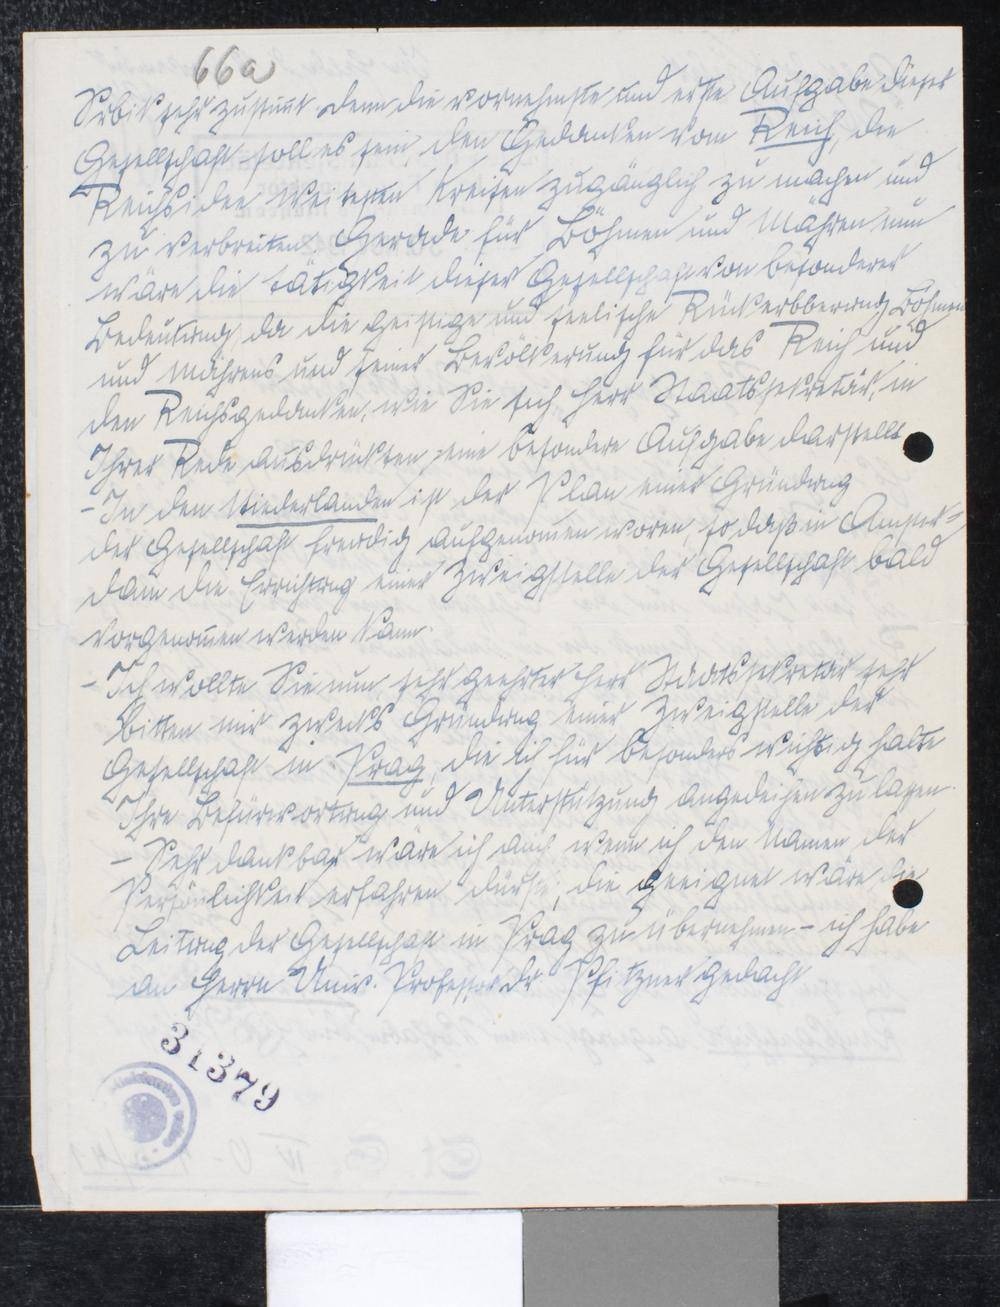 66a
Srbik sehr zustimt. Denn die vornehmste und erste Aufgabe dieser
Gesellschaft soll es sein, den Gedanken vom Reich, die
Reichsidee weitesten Kreisen zugänglich zu machen und
zu verbreiten. Gerade für Böhmen und Mähren nun
wäre die Tätigkeit dieser Gesellschaft von besonderer
Bedeutung, da die geistige und seelische Rückerobberung Böhmens
und Mährens und seiner Bevölkerung für das Reich und
den Reichsgedanken, wie Sie sich Herr Staatssekretär, in
Ihrer Rede ausdrückten, eine besondere Aufgabe darstellt.
- In den Niederlanden ist der Plan einer Gründung
der Gesellschaft freudig aufgenomen woren, so daß in Amster-
dam die Errichtung einer Zweigstelle der Gesellschaft bald
vorgenomen werden kann.
- Ich wollte Sie nun, sehr geehrter Herr Staatssekretär sehr
bitten mir zwecks Gründung einer Zweigstelle der
Gesellschaft in Prag, die ich für besonders wichtig halte
Ihre Befürwortung und Unterstützung angedeihen zu lassen.
- Sehr dankbar wäre ich auch wenn ich den Namen der
Persönlichkeit erfahren dürfte, die geeignet wäre die
Leitung der Gesellschaft in Prag zu übernehmen - ich habe
an Herrn Univ. Professor Dr Pfitzner gedacht
31379